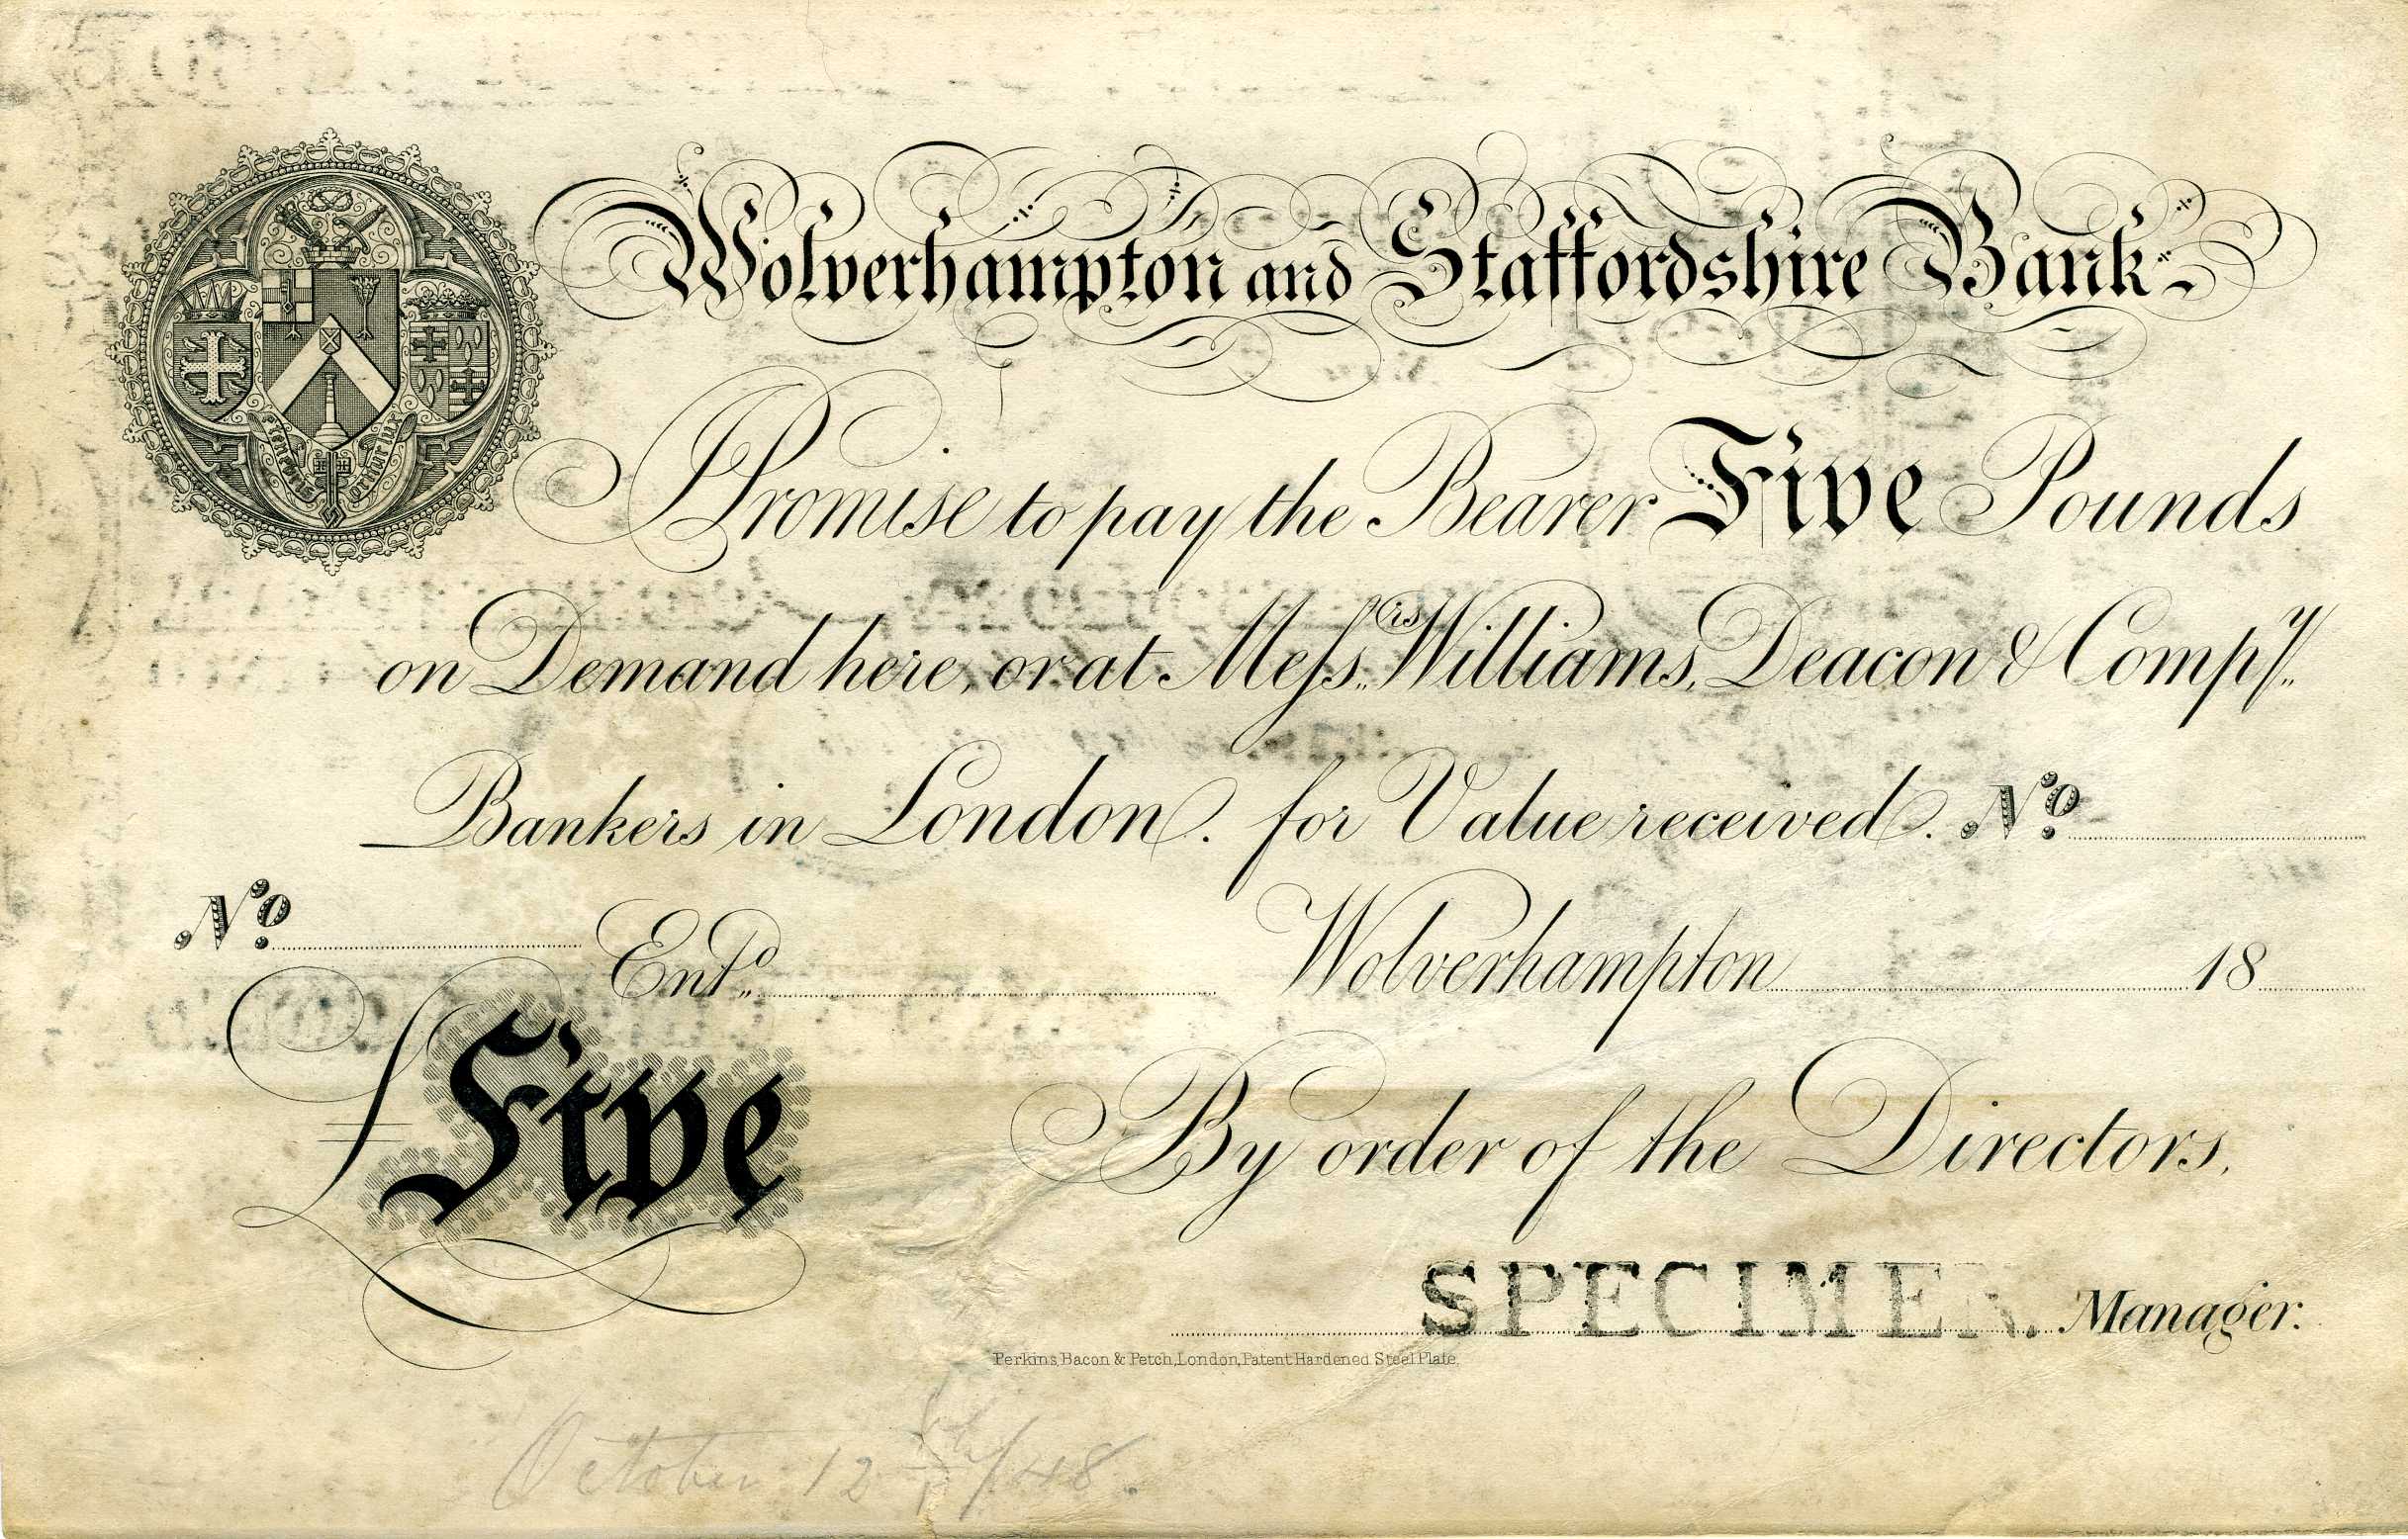 Wolverhampton and Staffordshire Bank
Promise to pay the Bearer Five Pounds
on Demand here, or at Messrs. Williams, Deacon & Compy.
Bankers in London. for Value received. No.
No. Entd. Wolverhampton 18
£ Five
By order of the Directors,
SPECIMEN. Manager.
Perkins, Bacon & Petch, London, Patent Hardened Steel Plate.
October 12th/48.
e tenebris oritur lux